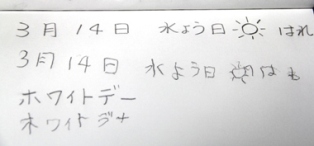 3月14日 水よう日 はれ
3月14日 水よう日 はも
ホワイトデー
ホワイトデナ